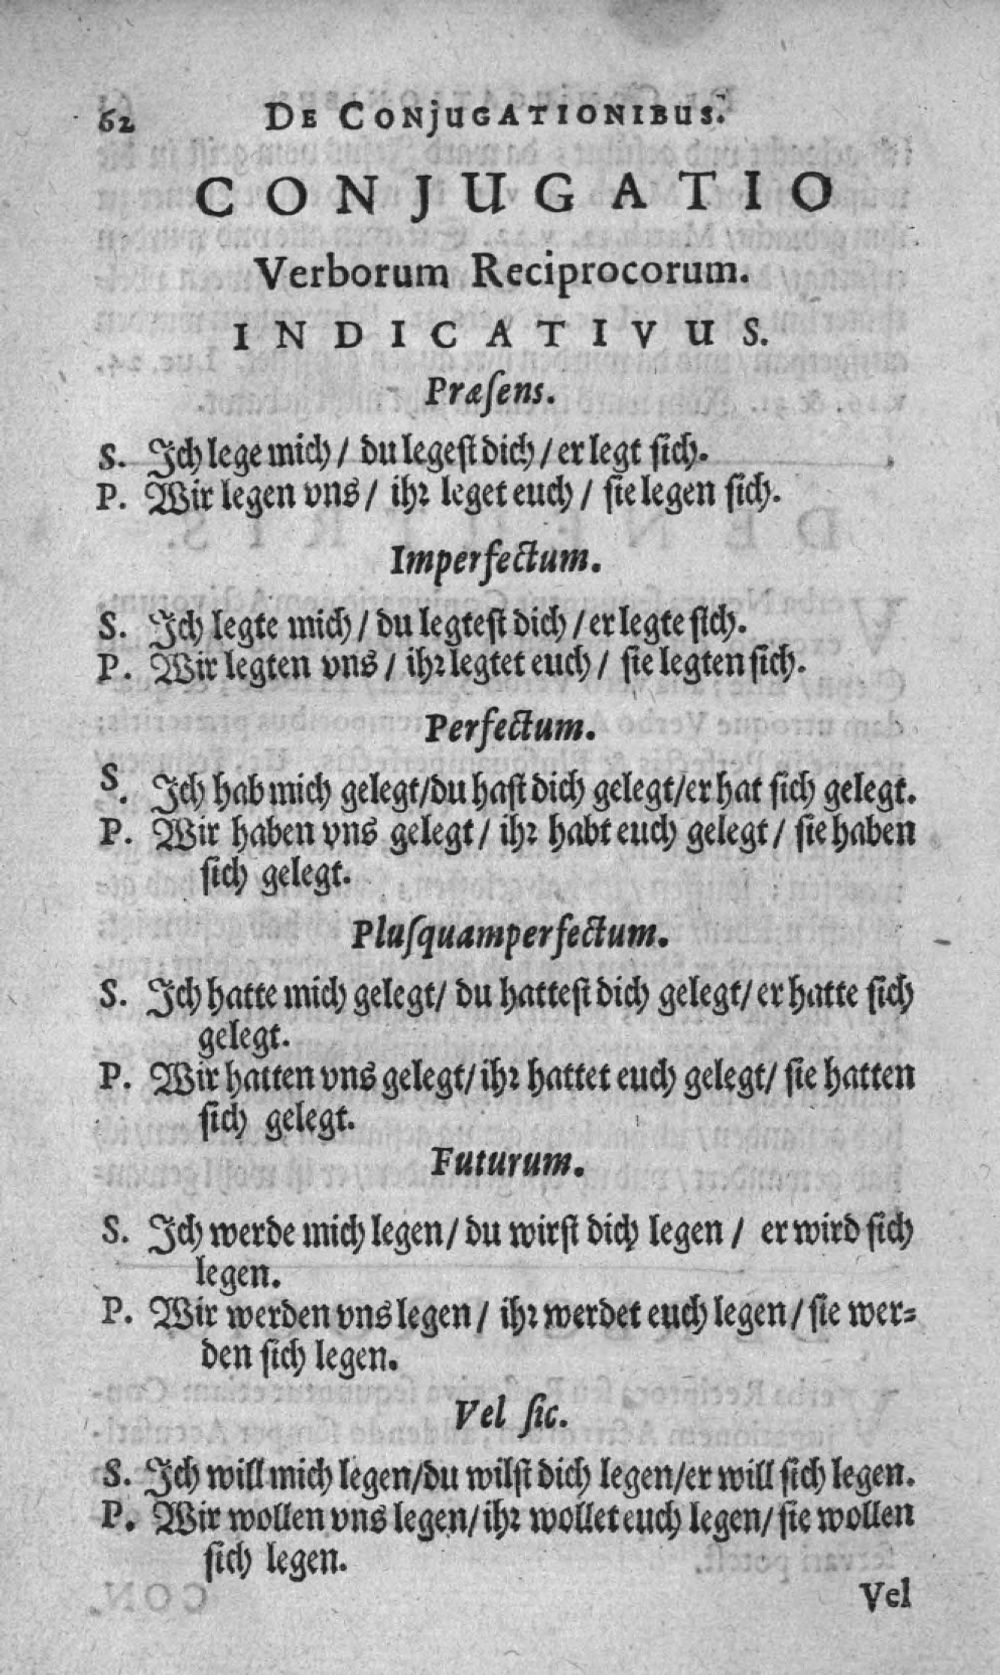 62 DE CONjUGATIONIBUS.
CONJUGATIO
Verborum Reciprocorum.
INDICATIVUS.
Præſens.
S. Ich lege mich / du legeſt dich / er legt ſich.
P. Wir legen vns / ihr leget euch / ſie legen ſich.
Imperfectum.
S. Ich legte mich / du legteſt dich / er legte ſich.
P. Wir legten vns / ihr legtet euch / ſie legten ſich.
Perfectum.
S. Ich hab mich gelegt/du haſt dich gelegt/er hat ſich gelegt.
P. Wir haben vns gelegt / ihr habt euch gelegt / ſie haben
ſich gelegt.
Pluſquamperfectum.
S. Ich hatte mich gelegt/ du hatteſt dich gelegt/ er hatte ſich
gelegt.
P. Wir hatten vns gelegt/ ihr hattet euch gelegt/ ſie hatten
ſich gelegt.
Futurum.
S. Ich werde mich legen/ du wirſt dich legen / er wird ſich
legen.
P. Wir werden vns legen / ihr werdet euch legen / ſie wer⸗
den ſich legen.
Vel ſic.
S. Ich will mich legen/du wilſt dich legen/er will ſich legen.
P. Wir wollen vns legen/ ihr wollet euch legen/ ſie wollen
ſich legen.
Vel